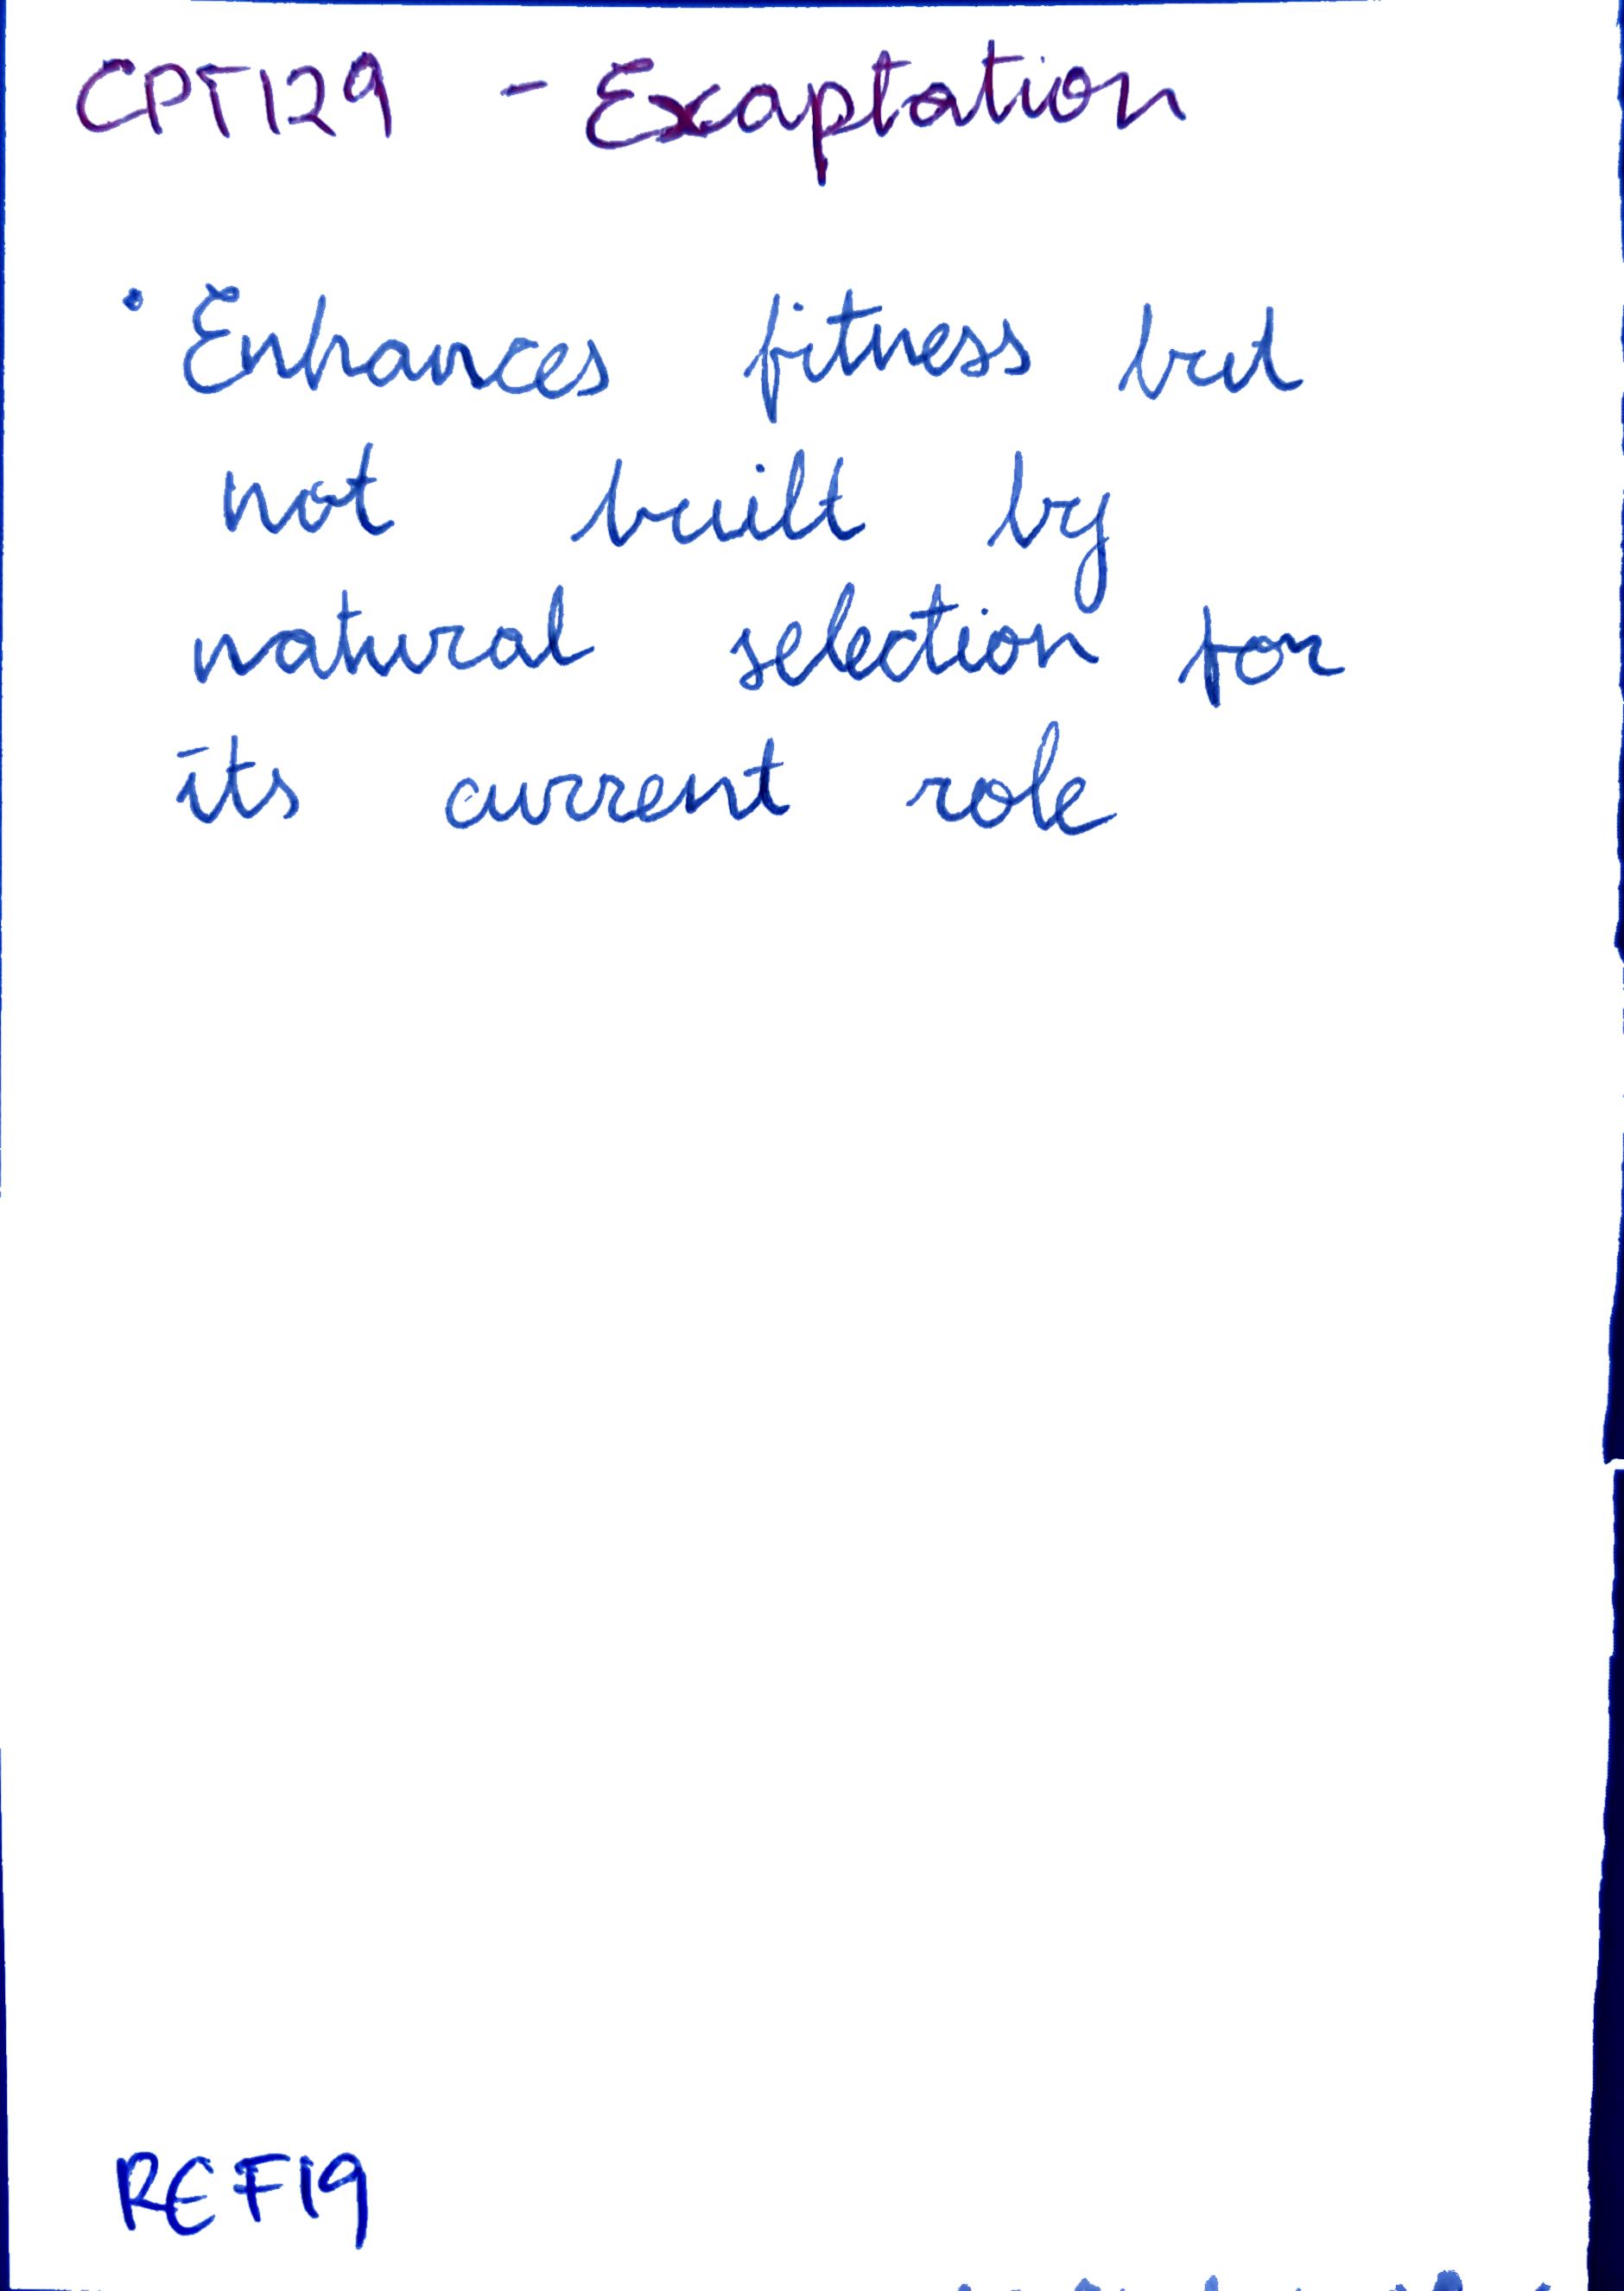 CPT129 - Exaptation
• Enhances fitness but
not built by
natural selection for
its current role
REF19